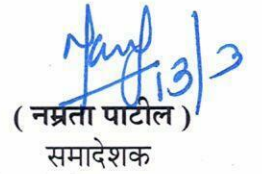 13/3
( नम्रता पाटील )
समादेशक